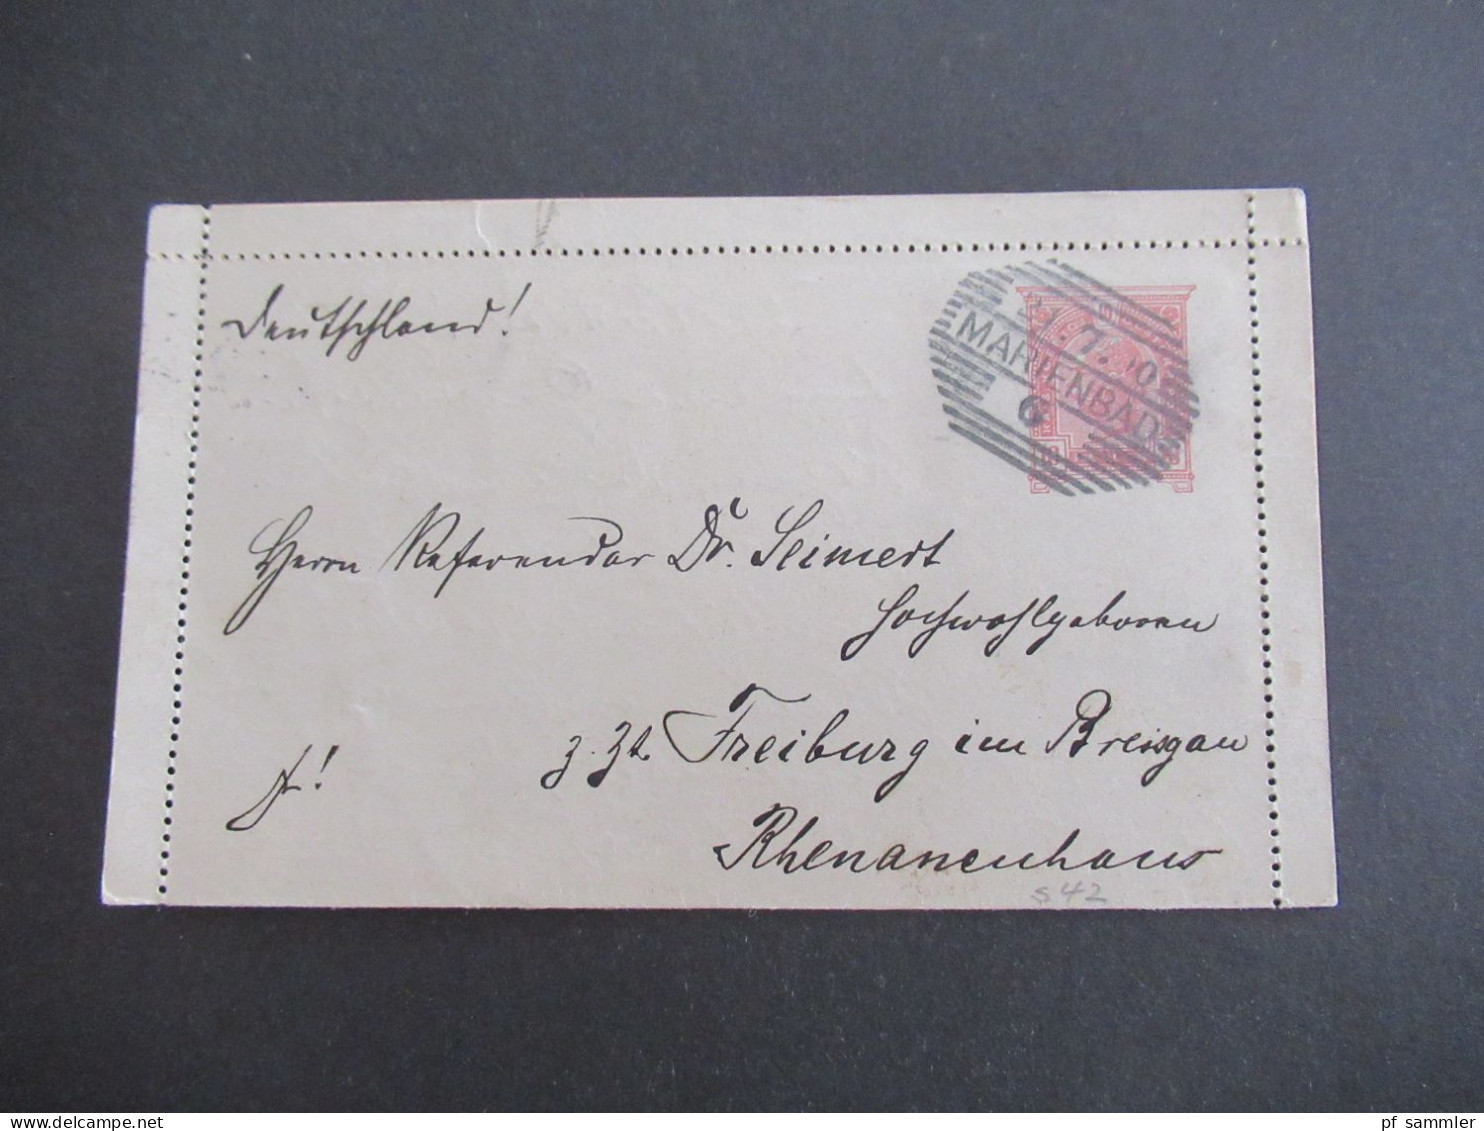 Deutschland!
21. 7. 00
MARIENBAD
Herrn Referendar Dr. Seimert
Hochwohlgeboren
z. Zt. Freiburg im Breisgau
fr!
Rhenanenhaus
S 42
pf sammler
www.delcampe.net